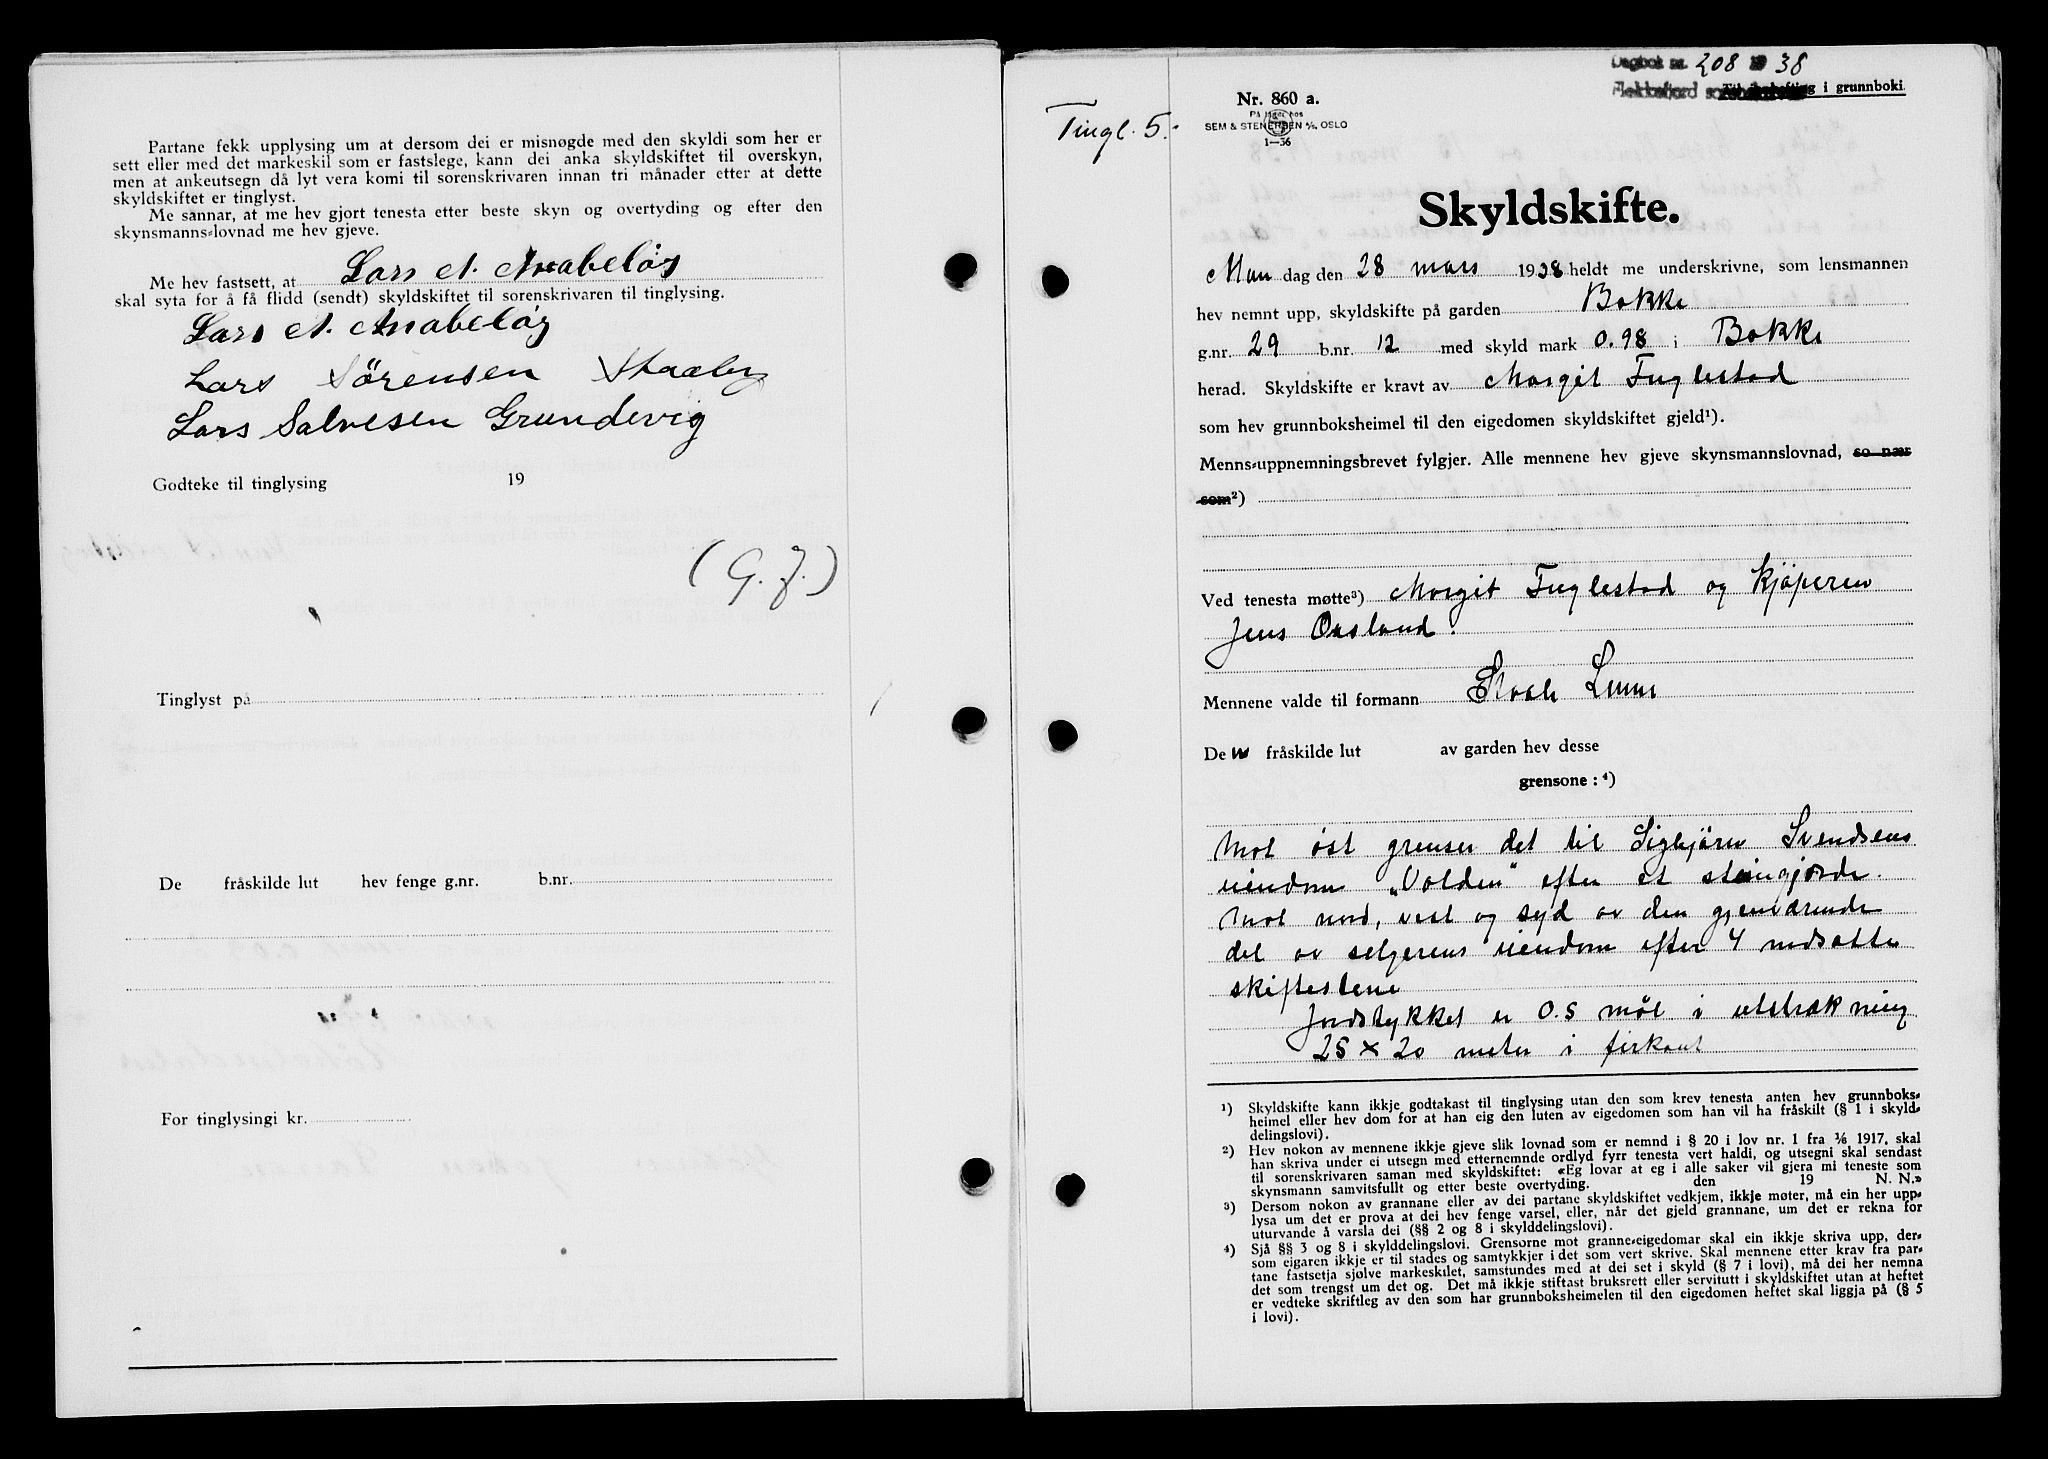 Partane fekk upplysing um at dersom dei er misnøgde med den skyldi som her er
sett eller med det markeskil som er fastslege, kann dei anka skyldskiftet til overskyn,
men at ankeutsegn då lyt vera komi til sorenskrivaren innan tri månader etter at dette
skyldskiftet er tinglyst.
Me sannar, at me hev gjort tenesta etter beste skyn og overtyding og efter den
skynsmanns-lovnad me hev gjeve.
Me hev fastsett, at Lars A. Anabeløy
skal syta for å få flidd (sendt) skyldskiftet til sorenskrivaren til tinglysing.
Lars A. Anabeløy
Lars Sørensen
Lars Salvesen Grundevig
Godteke til tinglysing 19
(G. J.)
Tinglyst på
De fråskilde lut hev fenge g.nr. b.nr.
For tinglysingi kr.
Dagbok nr. 208 19 38
Flekkefjord
Til innhefting i grunnboki
Tingl. 5.-
Nr. 860 a.
På lager hos
SEM & STENERSEN A/S, OSLO
1—36
Skyldskifte.
Man dag den 28 mars 1938 heldt me underskrivne, som lensmannen
hev nemnt upp, skyldskifte på garden Bakke
g.nr. 29 b.nr. 12 med skyld mark 0.98 i Bakke
herad. Skyldskifte er kravt av Margit Fuglestad
som hev grunnboksheimel til den eigedomen skyldskiftet gjeld¹).
Menns-uppnemningsbrevet fylgjer. Alle mennene hev gjeve skynsmannslovnad, so nær
som²)
Ved tenesta møtte³) Margit Fuglestad og kjøperen
Jens Aasland.
Mennene valde til formann
De n fråskilde lut av garden hev desse
grensone : ⁴)
Mot øst grenser det til Sigbjørn Svendsens
eiendom „Volden" efter et steingjerde.
Mot nord, vest og syd av den gjenværende
del av selgerens eiendom efter 4 nedsatte
skiftestene
Jordstykket er 0.5 mål i utstrækning
25 × 20 meter i firkant
¹) Skyldskifte kann ikkje godtakast til tinglysing utan den som krev tenesta anten hev grunnboks-
heimel eller hev dom for at han eig den luten av eigedomen som han vil ha fråskilt (§ 1 i skyld-
delingslovi).
²) Hev nokon av mennene ikkje gjeve slik lovnad som er nemnd i § 20 i lov nr. 1 fra 1/6 1917, skal
han skriva under ei utsegn med etternemnde ordlyd fyrr tenesta vert haldi, og utsegni skal sendast
til sorenskrivaren saman med skyldskiftet: «Eg lovar at eg i alle saker vil gjera mi teneste som
skynsmann samvitsfullt og etter beste overtyding. den 19 N. N.»
³) Dersom nokon av grannane eller av dei partane skyldskiftet vedkjem, ikkje møter, må ein her upp-
lysa um det er prova at dei hev fenge varsel, eller, når det gjeld grannane, um det er rekna for
uturvande å varsla dei (§§ 2 og 8 i skylddelingslovi).
⁴) Sjå §§ 3 og 8 i skylddelingslovi. Grensorne mot granne-eigedomar skal ein ikkje skriva upp, der-
som eigaren ikkje er til stades og samtykkjer i det som vert skrive. Skal mennene etter krav fra par-
tane fastsetja sjølve markeskilet, samstundes med at dei set i skyld (§ 7 i lovi), må dei her nemna
det som trengst um det og. Det må ikkje stiftast bruksrett eller servitutt i skyldskiftet utan at heftet
er vedteke skriftleg av den som har grunnboksheimelen til den eigedomen heftet skal liggja på (§ 5
i lovi).